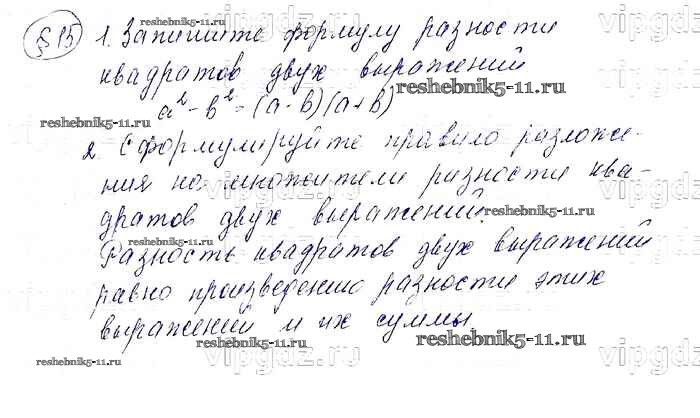 § 15
1. Запишите формулу разности
квадратов двух выражений
a² - b² = (a - b)(a + b)
2. Сформулируйте правило разложе-
ния на множители разности ква-
дратов двух выражений.
Разность квадратов двух выражений
равно произведению разности этих
выражений и их суммы
reshebnik5-11.ru
reshebnik5-11.ru
reshebnik5-11.ru
reshebnik5-11.ru
reshebnik5-11.ru
reshebnik5-11.ru
reshebnik5-11.ru
reshebnik5-11.ru
vipgdz.ru
vipgdz.ru
vipgdz.ru
vipgdz.ru
vipgdz.ru
vipgdz.ru